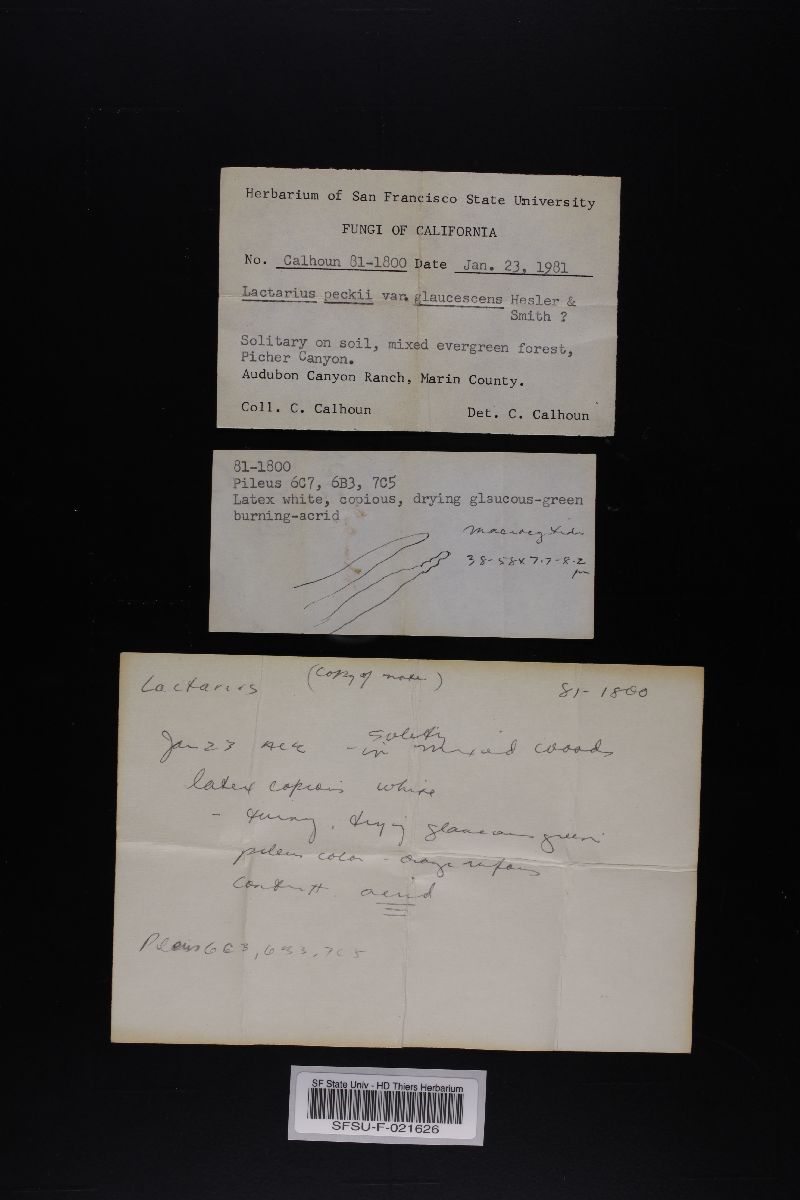 Herbarium of San Francisco State University
FUNGI OF CALIFORNIA
No. Calhoun 81-1800 Date Jan. 23, 1981
Lactarius peckii var. glaucescens Hesler &
Smith ?
Solitary on soil, mixed evergreen forest,
Picher Canyon.
Audubon Canyon Ranch, Marin County.
Coll. C. Calhoun Det. C. Calhoun
81-1800
Pileus 6C7, 6B3, 7C5
Latex white, copious, drying glaucous-green
burning-acrid
38-58x7.7-8.2
µm
Lactarius (Copy of note) 81-1800
Jan 23 ACR - in mixed woods
latex copious white
- drying glaucous green
pileus color - orange rufous
acrid
Pileus 6C3, 6B3, 7C5
SF State Univ - HD Thiers Herbarium
SFSU-F-021626